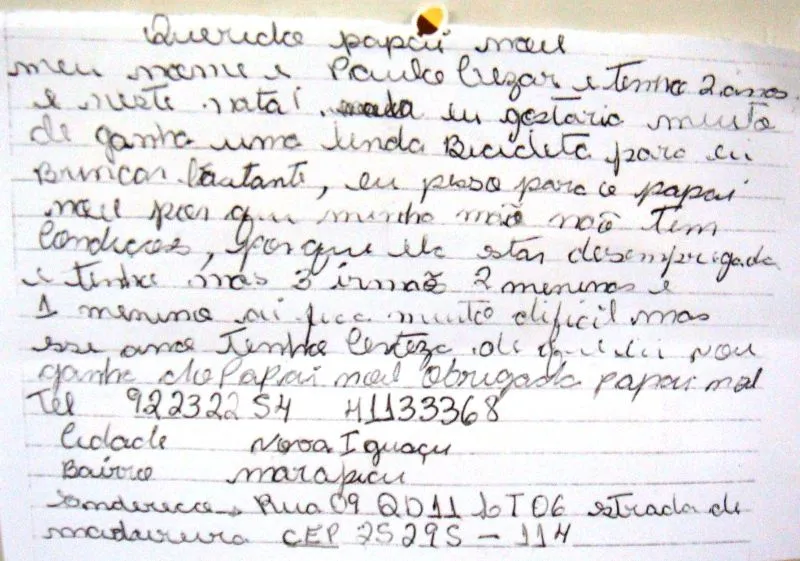 Querido papai noel
meu nome e Paulo Cezar e tenho 2 anos
e neste natal eu gostaria muito
de ganha uma linda Bicicleta para eu
Brincar bastante, eu peso para o papai
noel por que minha mãe não tem
Condicoes, porque ela estar desempregada
e tenho mas 3 irmão 2 meninas e
1 menino ai fica muito dificil mas
esse ano tenho certeza de que eu vou
ganha do Papai noel obrigada papai noel
Tel 92232254 41133368
Cidade Nova Iguaçu
Bairro marapicu
Endereco Rua 09 QD11 LT06 estrada de
madureira CEP 25295-114